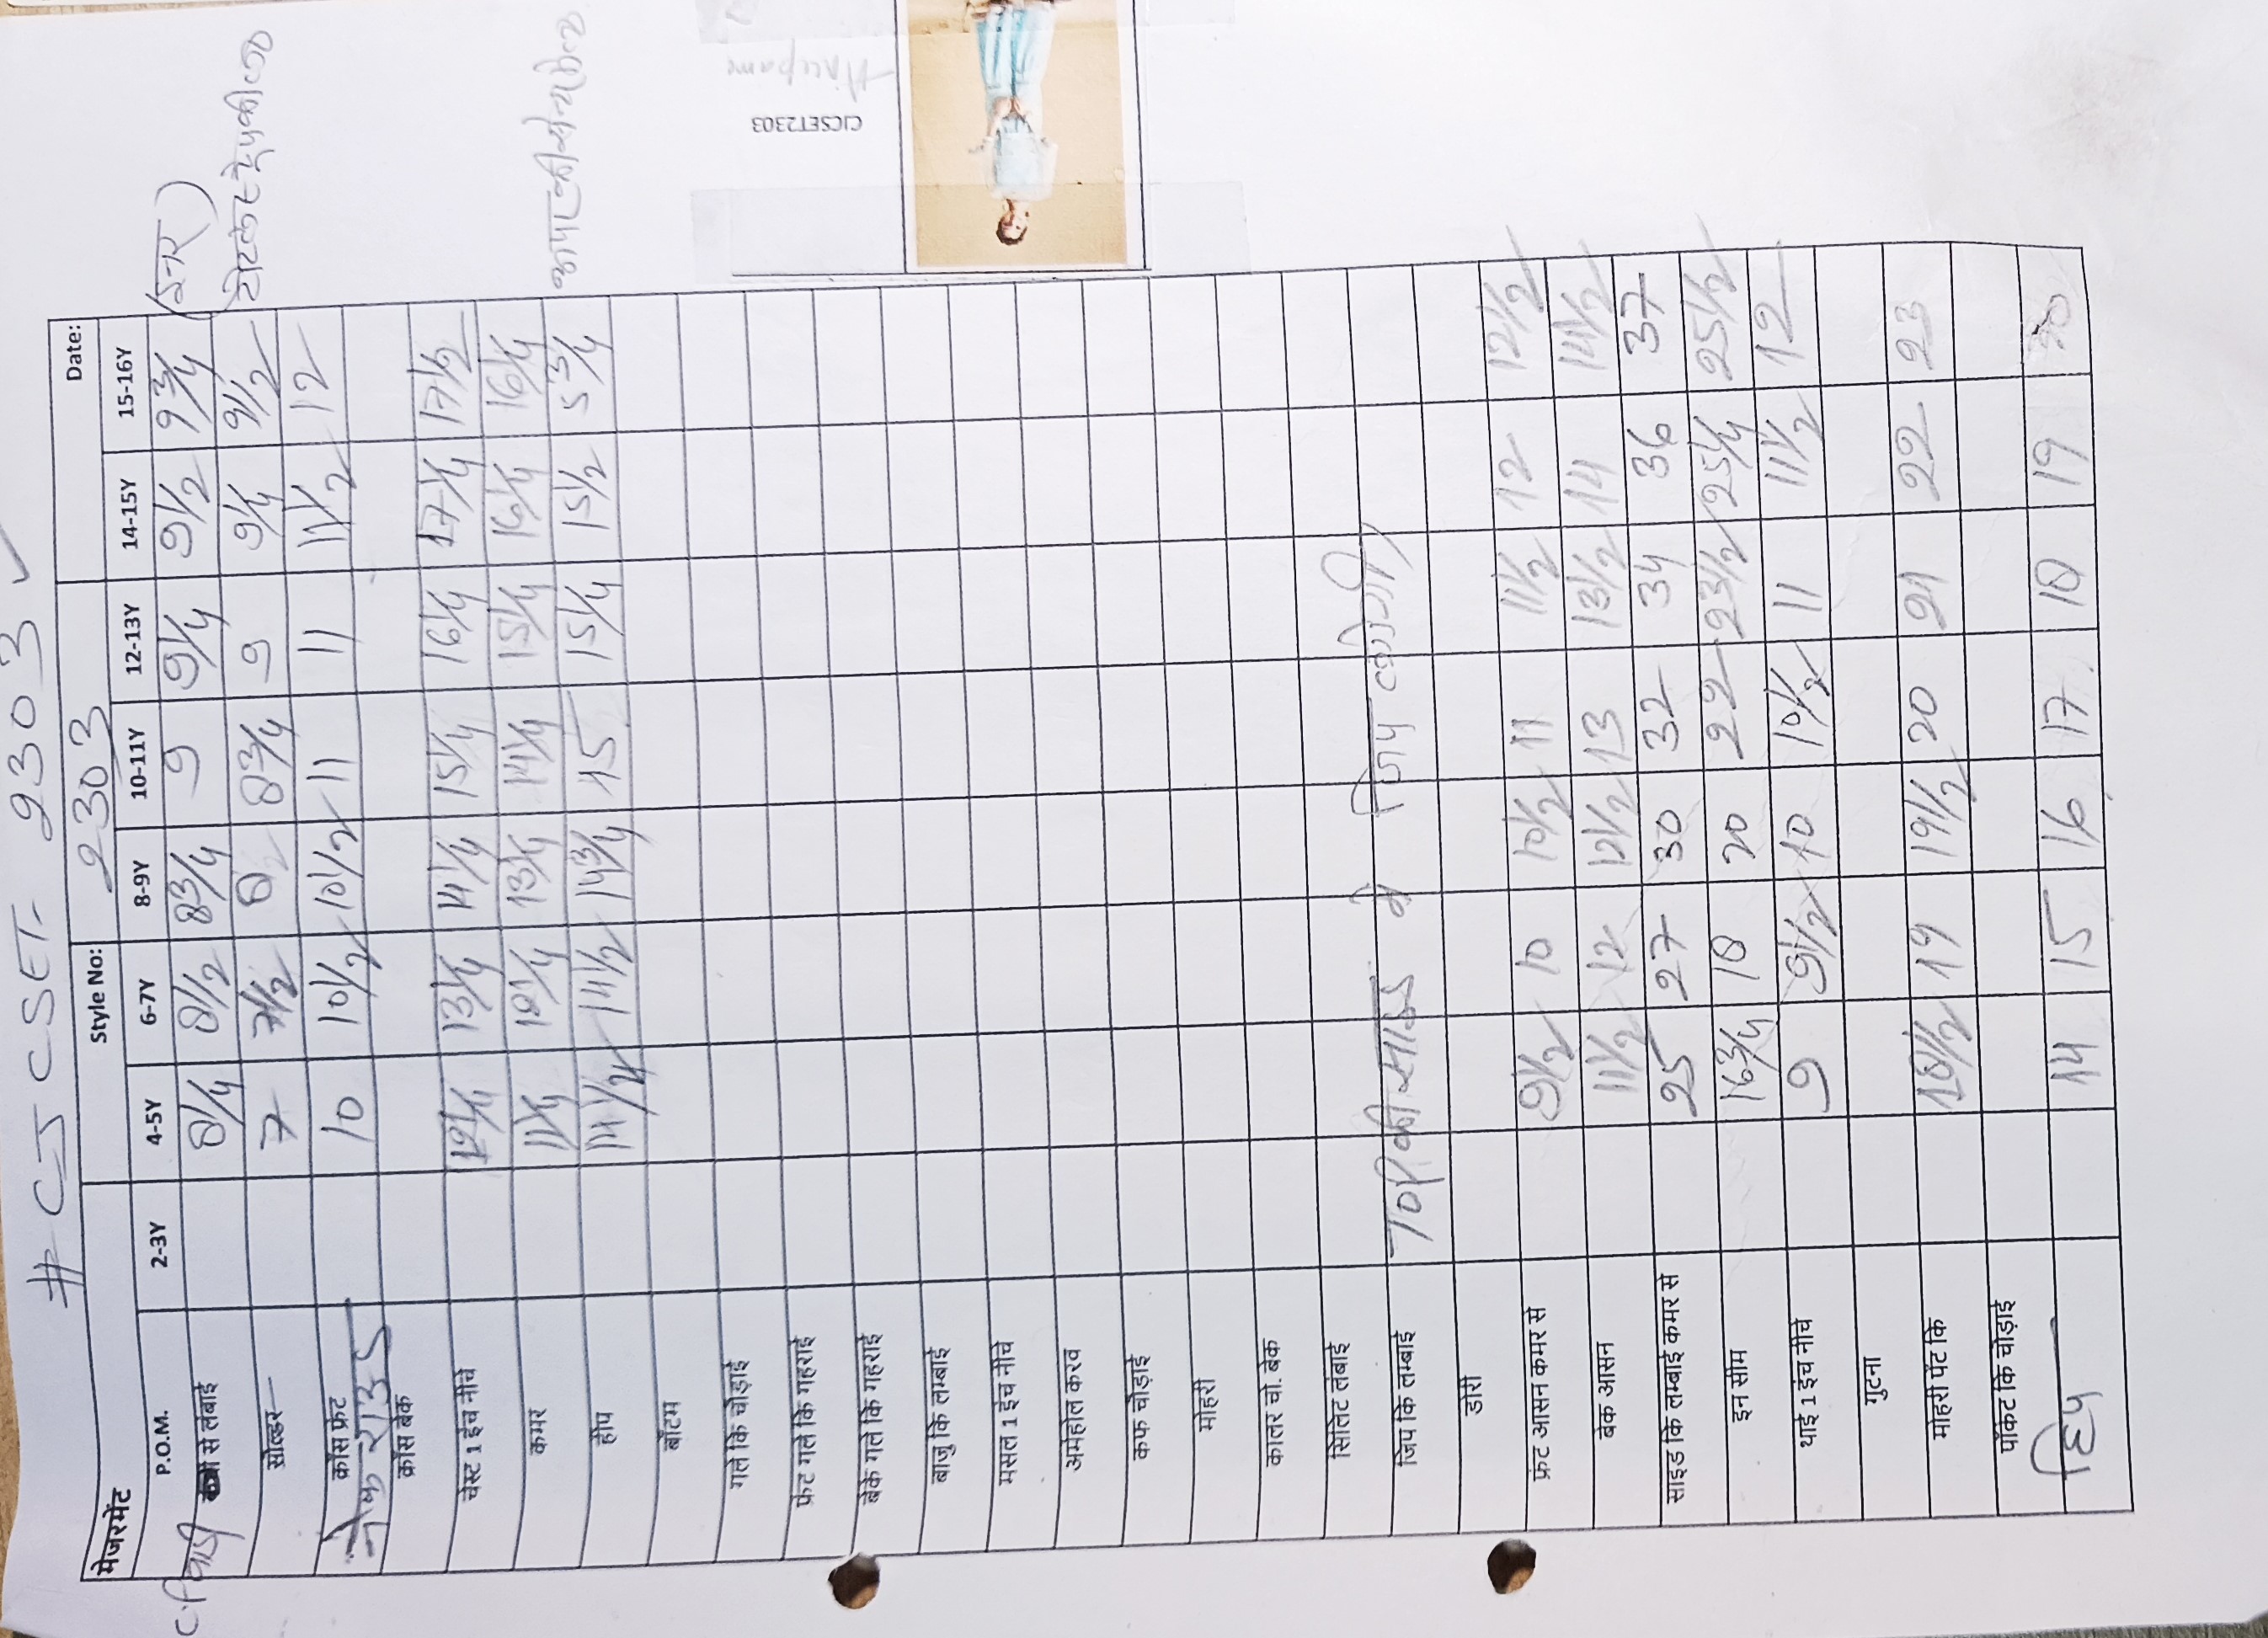 # CJ CSET- 2303 ✓
मेजरमेंट Style No: 2303 Date:
P.O.M. 2-3Y 4-5Y 6-7Y 8-9Y 10-11Y 12-13Y 14-15Y 15-16Y
से लंबाई 8 1/4 8 1/2 8 3/4 9 9 1/4 9 1/2 9 3/4
सोल्डर 7 7 1/2 8 3/4 9 9 1/4 9 1/2
क्रॉस फ्रंट 10 10 1/2 10 1/2 11 11 11 1/2 12
नेक राउंड
क्रॉस बेक
चेस्ट 1 इंच नीचे 12 1/4 13 1/4 14 1/4 15 1/4 16 1/4 17 1/4 17 1/2
कमर 11 1/4 12 1/4 13 1/4 14 1/4 15 1/4 16 1/4 16 1/4
हीप 14 1/4 14 1/2 14 3/4 15 15 1/4 15 1/2 5 3/4
बॉटम
गले कि चोड़ाई
फ्रंट गले कि गहराई
बेक गले कि गहराई
बाजु कि लम्बाई
मसल 1 इंच नीचे
अर्महोल करव
कफ चोड़ाई
मोहरी
कालर चो. बेक
सिलिट लंबाई
जिप कि लम्बाई TOP की साइड में जिप लगेगी
डोरी
फ्रंट आसन कमर से 9 1/2 10 10 1/2 11 11 1/2 12 12 1/2
बेक आसन 11 1/2 12 12 1/2 13 13 1/2 14 14 1/2
साइड कि लम्बाई कमर से 25 27 30 32 34 36 37
इन सीम 16 3/4 18 20 22 23 1/2 25 1/4 25 1/2
थाई 1 इंच नीचे 9 9 1/2 10 10 1/2 11 11 1/2 12
गुटना
मोहरी पेंट कि 18 1/2 19 19 1/2 20 21 22 23
पॉकेट कि चोड़ाई
हिप 14 15 16 17 18 19 20
CJCSET2303